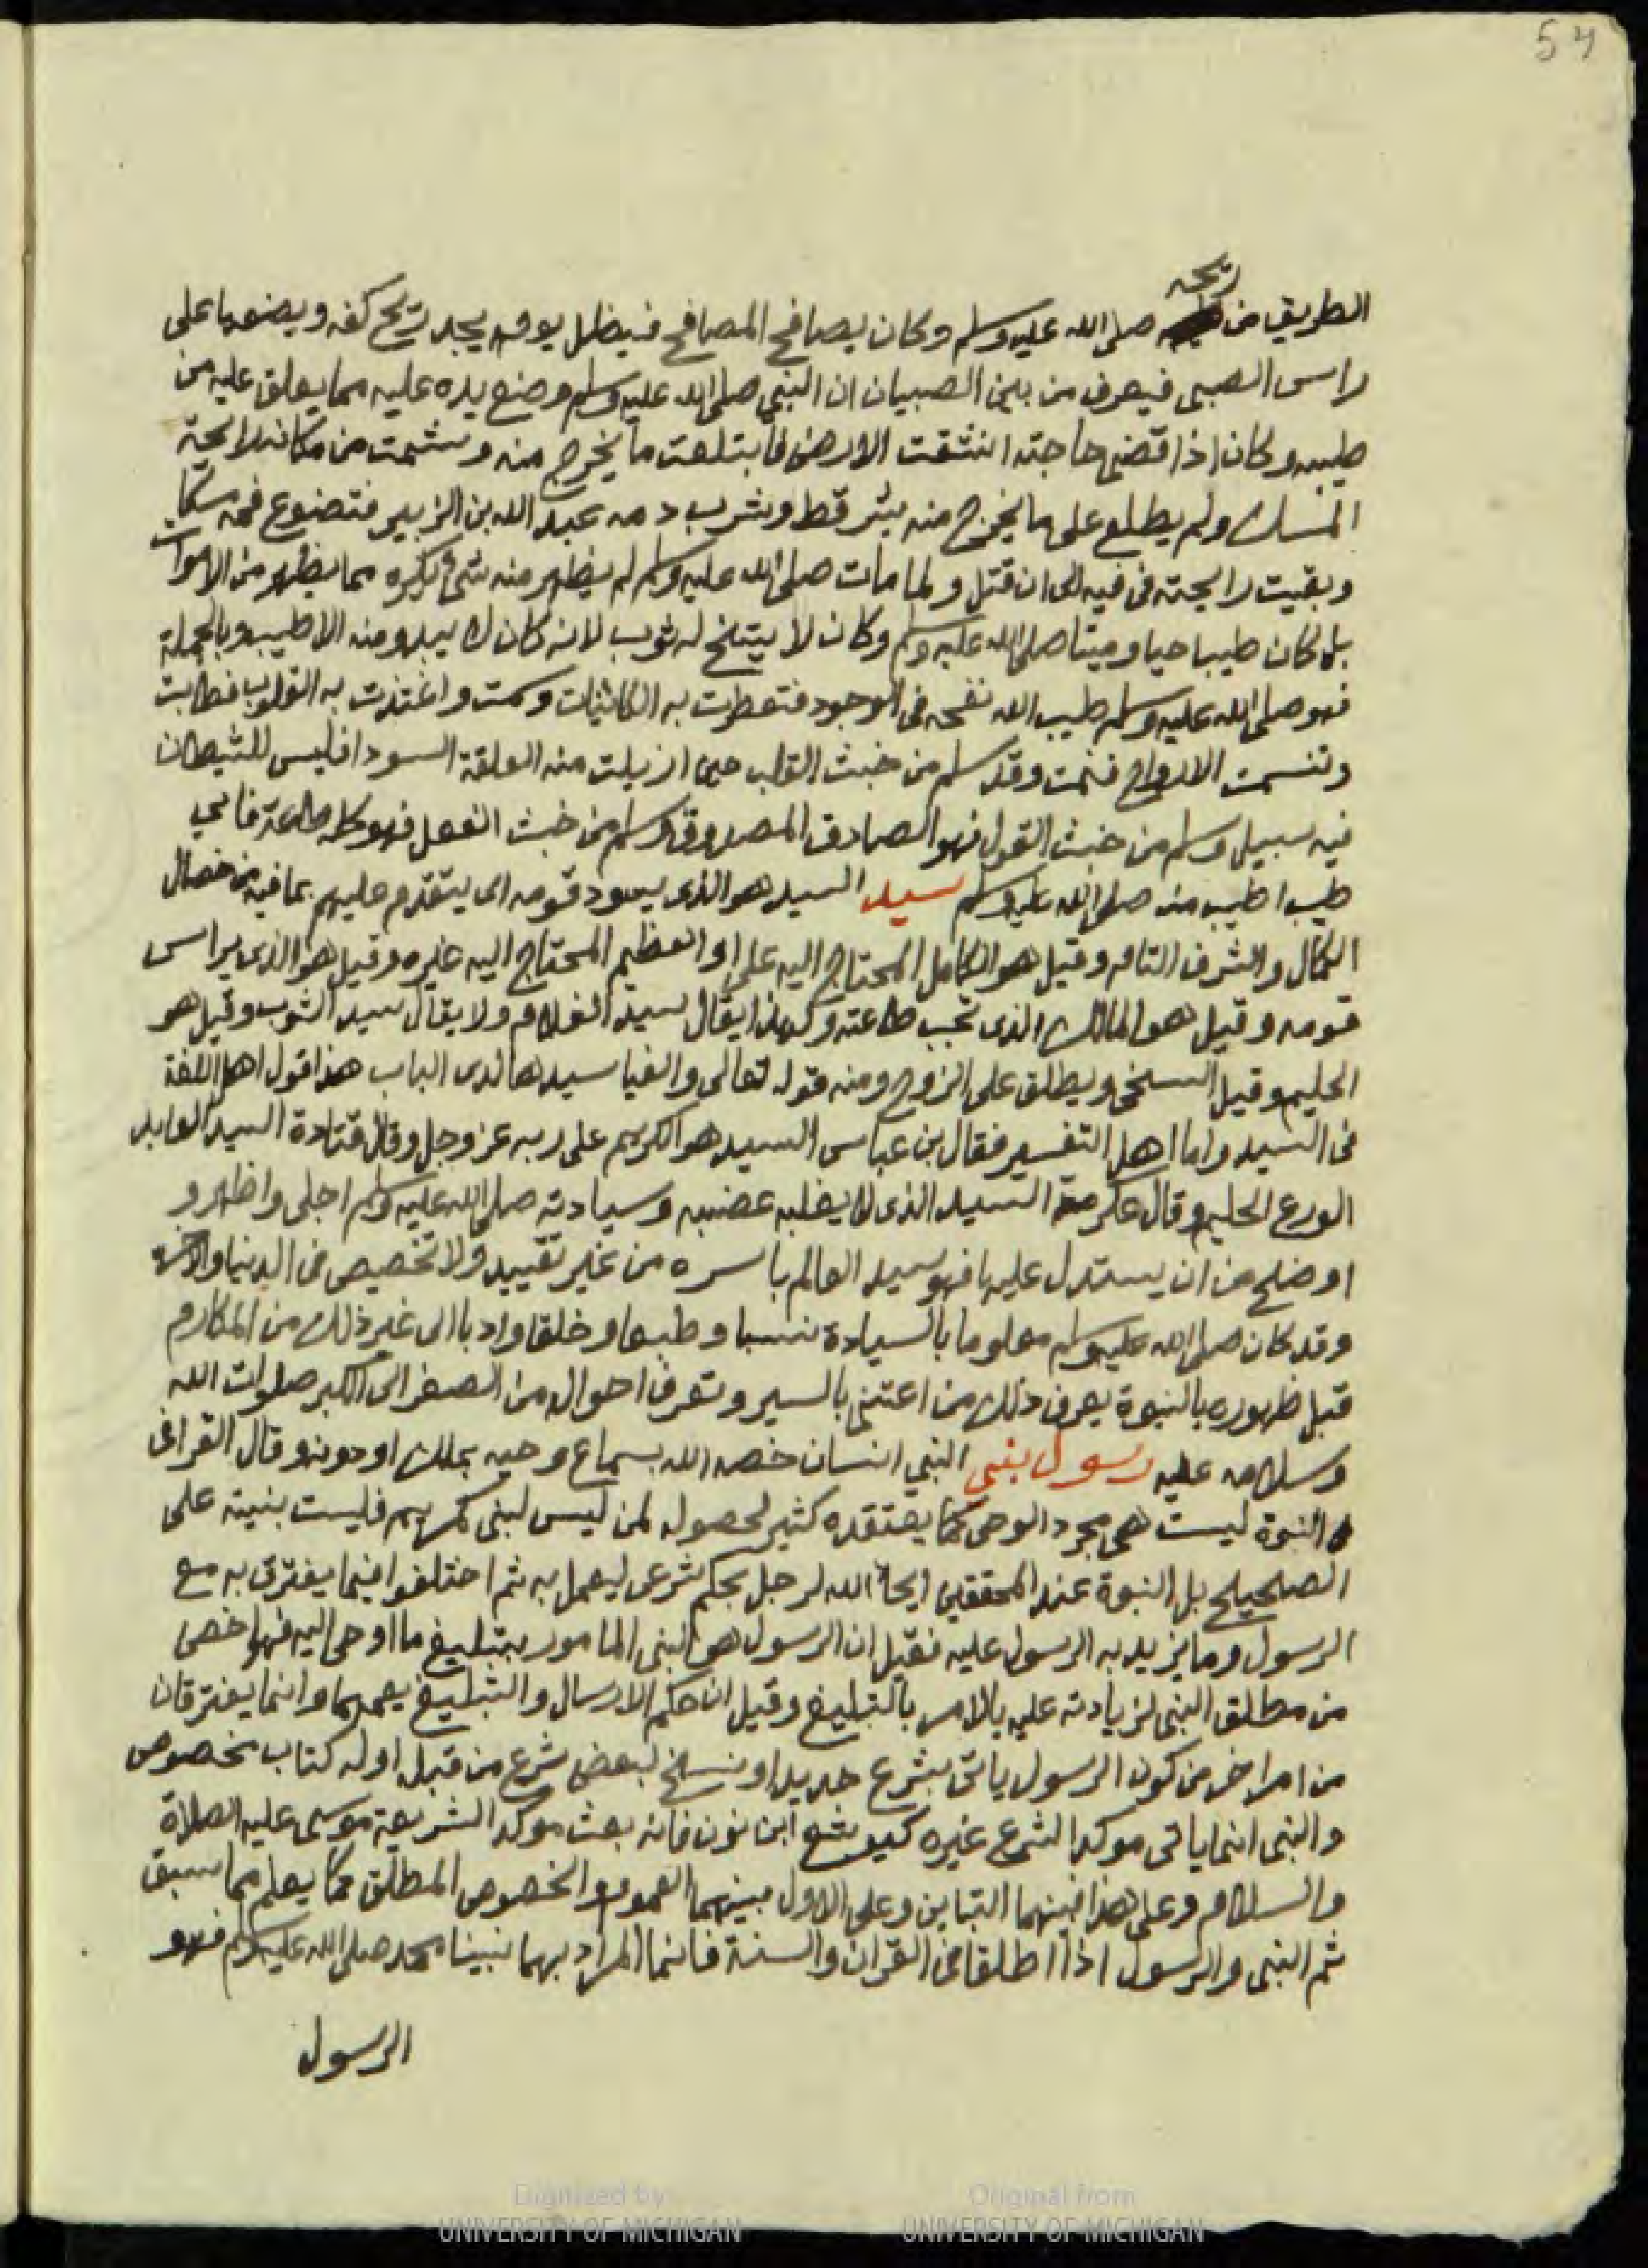 54
ريحه
الطريق من صلى الله عليه وسلم وكان يصافح المصافح فيظل يومه يجد ريح كفه ويضعها على
راس الصبى فيعرف من بين الصبيان ان النبي صلى الله عليه وسلم وضع يده عليه مما يعلق عليه من
طيبه وكان اذا قضى حاجته انشقت الارض فابتلعت ما يخرج منه وشممت من مكانه رائحة
المسك ولم يطلع على ما يخرج منه بشر قط وشرب دمه عبد الله بن الزبير فتضوع فمه مسكا
وبقيت رايحته في فيه الى ان قتل ولما مات صلى الله عليه وسلم لم يظهر منه شئ يكره مما يظهر من الاموات
بل كان طيبا حيا وميتا صلى الله عليه وسلم وكان لا يتسخ له ثوب لانه كان لا يبدو منه الا طيب وبالجملة
فهو صلى الله عليه وسلم طيب الله نفحه فى الوجود فتعطرت به الكائنات وسمت واغتذت به القلوب فطابت
وتنسمت الارواح فنمت وقد سلم من خبث القلب حين ازيلت منه العلقة السودا فليس للشيطان
فيه سبيل وسلم من خبث القول فهو الصادق المصدوق وسلم من خبث الفعل فهو كله طاعة فاي
طيب اطيب منه صلى الله عليه وسلم سيد السيد هو الذى يسود قومه اى يتقدم عليهم بما فيه من خصال
الكمال والشرف التام وقيل هو الكامل المحتاج اليه على او العظيم المحتاج اليه غيره وقيل هو الذى يراس
قومه وقيل هو المالك الذى تجب طاعته ولهذا يقال سيد الغلام ولا يقال سيد الثوب وقيل هو
الحليم وقيل السخى ويطلق على الزوج ومنه قوله تعالى والفيا سيدها لدى الباب هذا قول اهل اللغة
فى السيد واما اهل التفسير فقال بن عباس السيد هو الكريم على ربه عز وجل وقال قتادة السيد العابد
الورع الحليم وقال عكرمة السيد الذى لا يغلبه غضبه وسيادته صلى الله عليه وسلم اجلى واظهر و
اوضح من ان يستدل عليها فهو سيد العالم باسره من غير تقييد ولا تخصيص فى الدنيا والاخرة
وقد كان صلى الله عليه وسلم معلوما بالسيادة نسبا وطبعا وخلقا وادبا الى غير ذلك من المكارم
قبل ظهوره بالنبوة يعرف ذلك من اعتنى بالسير وتعرف احواله من الصغر الى الكبر صلوات الله
وسلامه عليه رسول نبى النبي انسان خصه الله بسماع وحيه بملك او دونه وقال القرافى
النبوة ليست هى مجرد الوحى كما يعتقده كثير لحصوله لمن ليس لبنى كمريم فليست بنبية على
الصحيح بل النبوة عند المحققين ايحاء الله لرجل بحكم شرعى ليعمل به ثم اختلفوا فيما يفترق به مع
الرسول وما يزيد به الرسول عليه فقيل ان الرسول هو النبى المامور بتبليغ ما اوحى اليه فهو اخص
من مطلق النبى لزيادته عليه بالامر بالتبليغ وقيل ان حكم الارسال والتبليغ يعمهما وانما يفترقان
من امر اخر من كون الرسول ياتى بشرع جديد او نسخ لبعض شرع من قبله اوله كتاب مخصوص
والنبى انما ياتى موكدا لشرع غيره كيوشع ابن نون فانه بعث موكدا لشريعة موسى عليه الصلاة
والسلام وعلى هذا فبينهما التباين وعلى الاول فبينهما العموم والخصوص المطلق كما يعلم مما سبق
ثم النبى والرسول اذا اطلقا فى القران والسنة فانما المراد بهما نبينا محمد صلى الله عليه وسلم فهو
الرسول
Digitized by
UNIVERSITY OF MICHIGAN
Original from
UNIVERSITY OF MICHIGAN